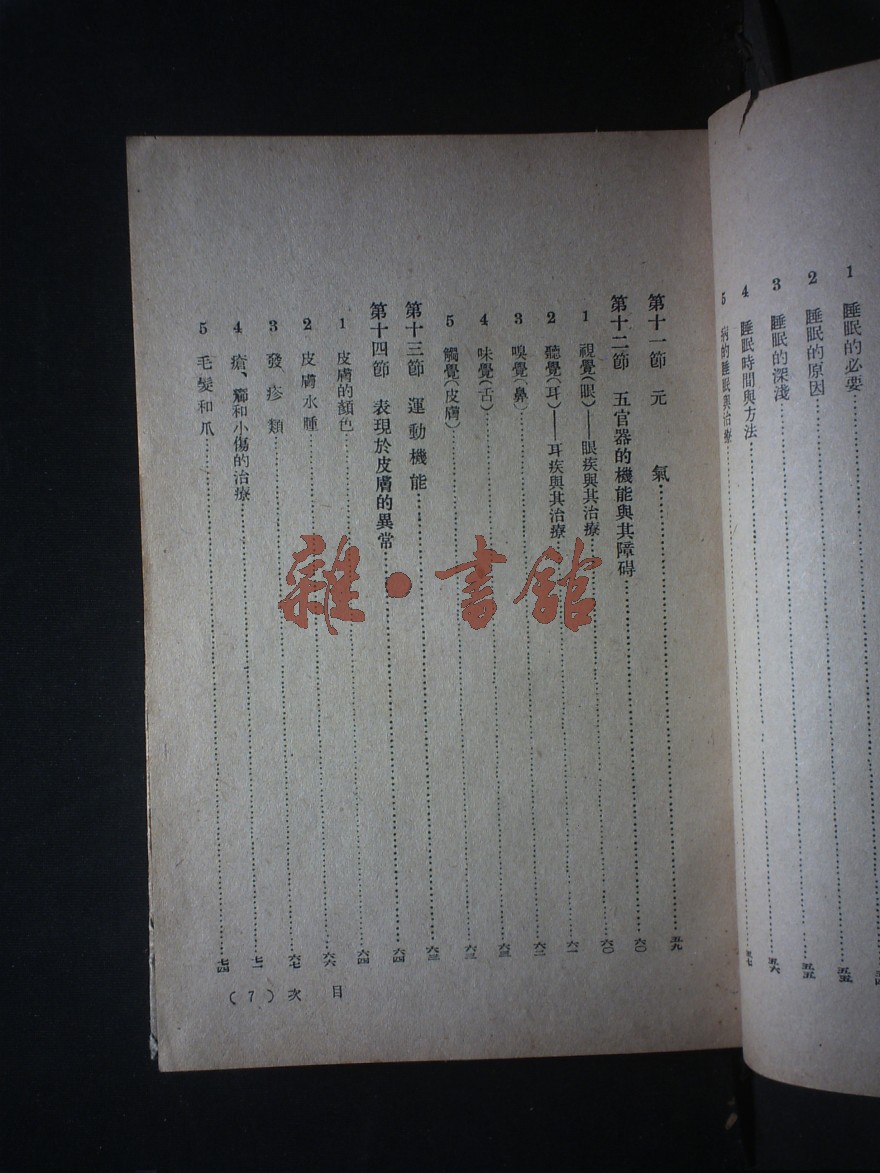 1 睡眠的必要
2 睡眠的原因……五五
3 睡眠的深淺……五五
4 睡眠時間與方法……五六
5 病的睡眠與治療……五七
第十一節 元 氣……五九
第十二節 五官器的機能與其障碍……六〇
1 視覺(眼)——眼疾與其治療……六〇
2 聽覺(耳)——耳疾與其治療……六一
3 嗅覺(鼻)……六二
4 味覺(舌)……六三
5 觸覺(皮膚)……六三
第十三節 運動機能……六三
第十四節 表現於皮膚的異常……六四
1 皮膚的顏色……六四
2 皮膚水腫……六六
3 發疹類……六七
4 瘡、癤和小傷的治療……七一
5 毛髮和爪……七四
目 次 (7)
雜·書館